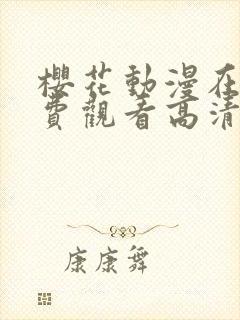 櫻花動漫在
費觀看高清
康康舞